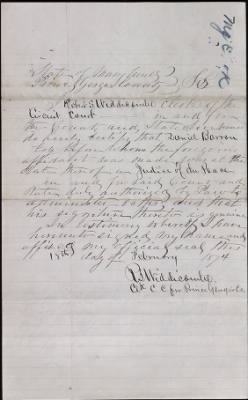 State of Maryland
Prince Georges County } Ss
I Robt S Widdicombe Clerk of the
Circuit Court in and for
the County and State
do hereby certify that Daniel Barron
Esq before whom the foregoing
affidavit was made was at the
date thereof an Justice of the Peace
in and for said County and
State duly authorized by law to
administer oaths and that
his signature thereto is genuine
In testimony whereof I have
hereunto signed my name and
affixed my official seal this
18th day of February 1874
R S Widdicombe
Clk C C for Prince Georges Co